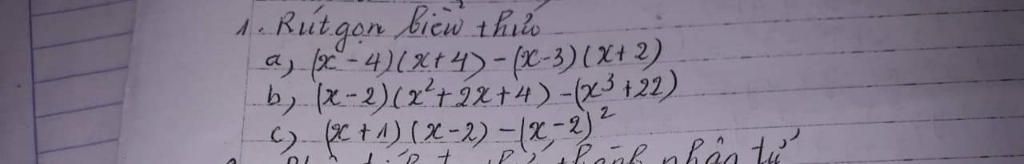 1. Rút gọn biểu thức
a, (x - 4)(x + 4) - (x - 3)(x + 2)
b, (x - 2)(x² + 2x + 4) - (x³ + 22)
c, (x + 1)(x - 2) - (x - 2)²
thành nhân tử